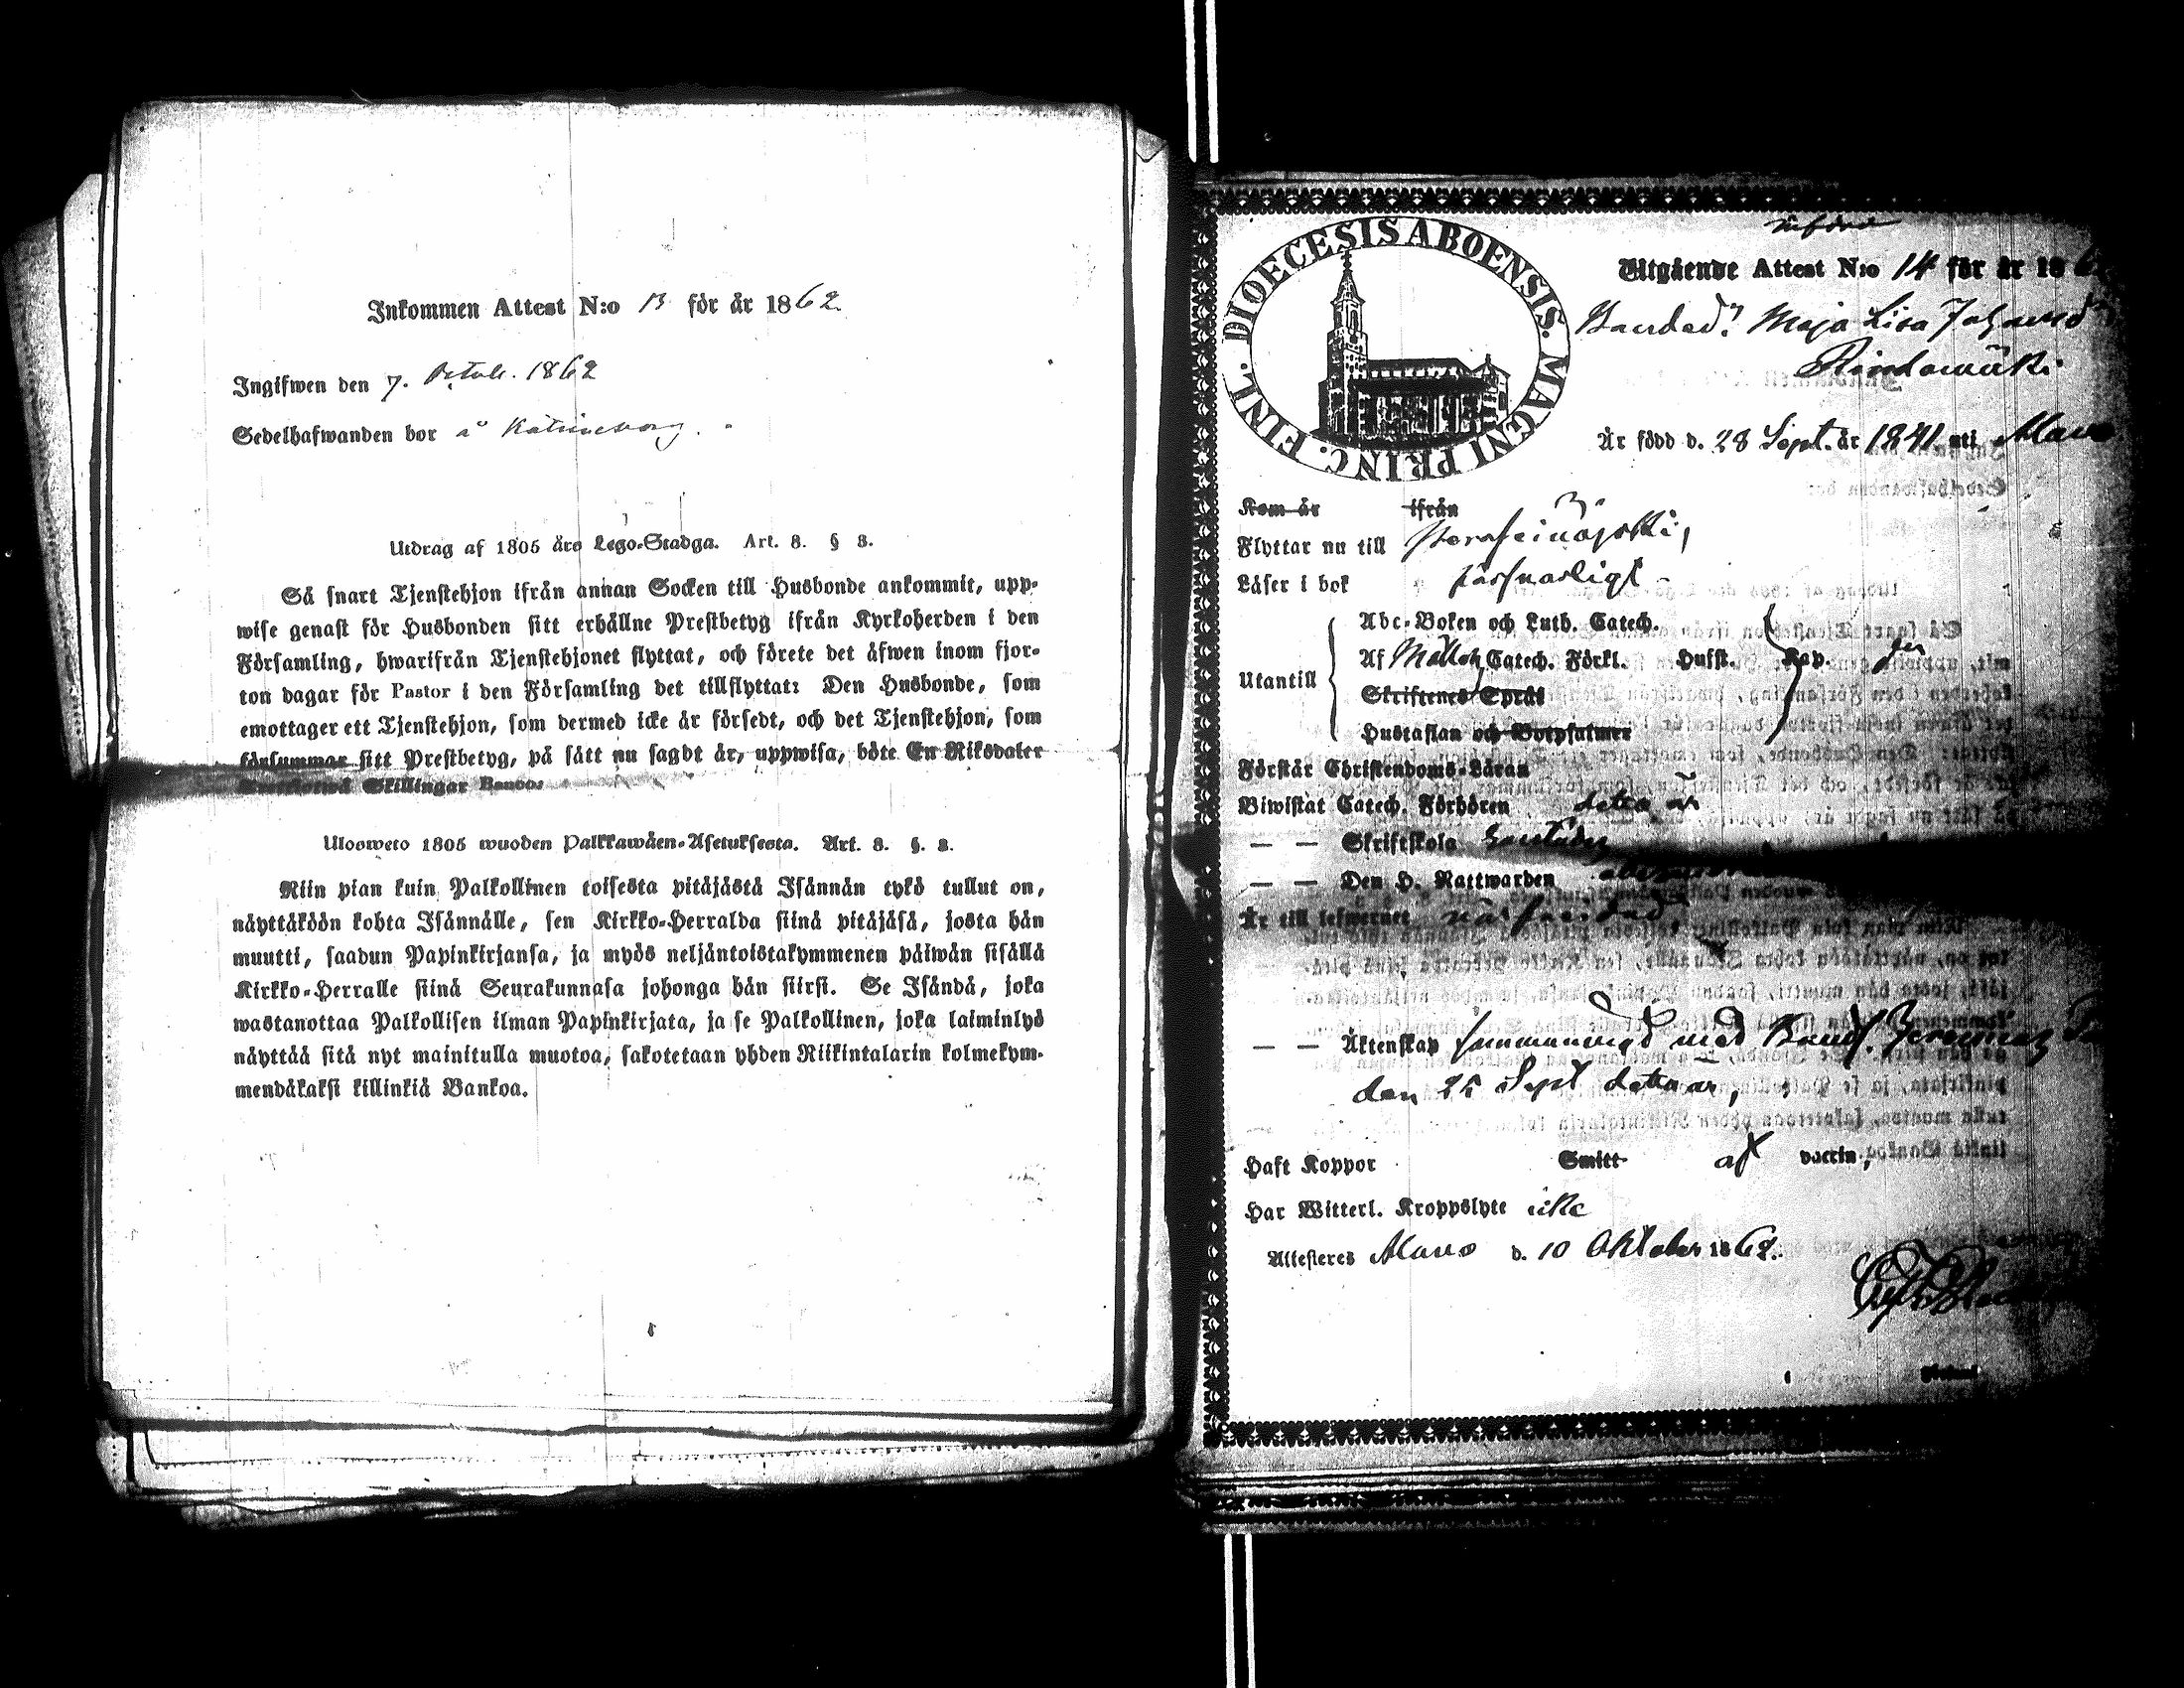 Inkommen Attest N:o 13 för år 1862.
Ingifwen den 7. Octob. 1862
Sedelhafwanden bor å Katrineborg.
Utdrag af 1805 års Lego-Stadga. Art. 8. § 3.
Så snart Tjenstehjon ifrån annan Socken till Husbonde ankommit, upp-
wise genast för Husbonden sitt erhållne Prestbetyg ifrån Kyrkoherden i den
Församling, hwarifrån Tjenstehjonet flyttat, och förete det äfwen inom fjor-
ton dagar för Pastor i den Församling det tillflyttat: Den Husbonde, som
emottager ett Tjenstehjon, som dermed icke är försedt, och det Tjenstehjon, som
försummar sitt Prestbetyg, på sätt nu sagdt är, uppwisa, böte En Riksdaler
Trettiotwå Skillingar Banco.
Ulosweto 1805 wuoden Palkkawäen-Asetuksesta. Art. 8. §. 3.
Niin pian kuin Palkollinen toisesta pitäjästä Isännän tykö tullut on,
näyttäköön kohta Isännälle, sen Kirkko-Herralda siinä pitäjäsä, josta hän
muutti, saadun Papinkirjansa, ja myös neljäntoistakymmenen päiwän sisällä
Kirkko-Herralle siinä Seurakunnasa johonga hän siirsi. Se Isändä, joka
wastanottaa Palkollisen ilman Papinkirjata, ja se Palkollinen, joka laiminlyö
näyttää sitä nyt mainitulla muotoa, sakotetaan yhden Riikintalarin kolmekym-
mendäkaksi killinkiä Bankoa.
DIOECESIS ABOENSIS. MAGNI PRINC. FINL.
införd
Utgående Attest N:o 14 för år 186
Maja Lisa Johansd
Är född d. 28 Sept. år 1841 uti Alavo
Kom år ifrån
Flyttar nu till
Läser i bok försvarligt
Utantill
Abc-Boken och Luth. Catech.
Af Catech. Förkl. Husst. Kap.
Skriftenes Språk
Hustaflan och Botpsalmer
Förstår Christendoms-Läran
Biwistat Catech. Förhören detta år
— — Skriftskola
— — Den H. Nattwarden
Är till lefwernet
— — Äktenskap med
den 25 Sept detta år,
Haft Koppor Smitt af vaccin,
Har Witterl. Kroppslyte icke
Attesteres Alavo d. 10 Oktober 1862.